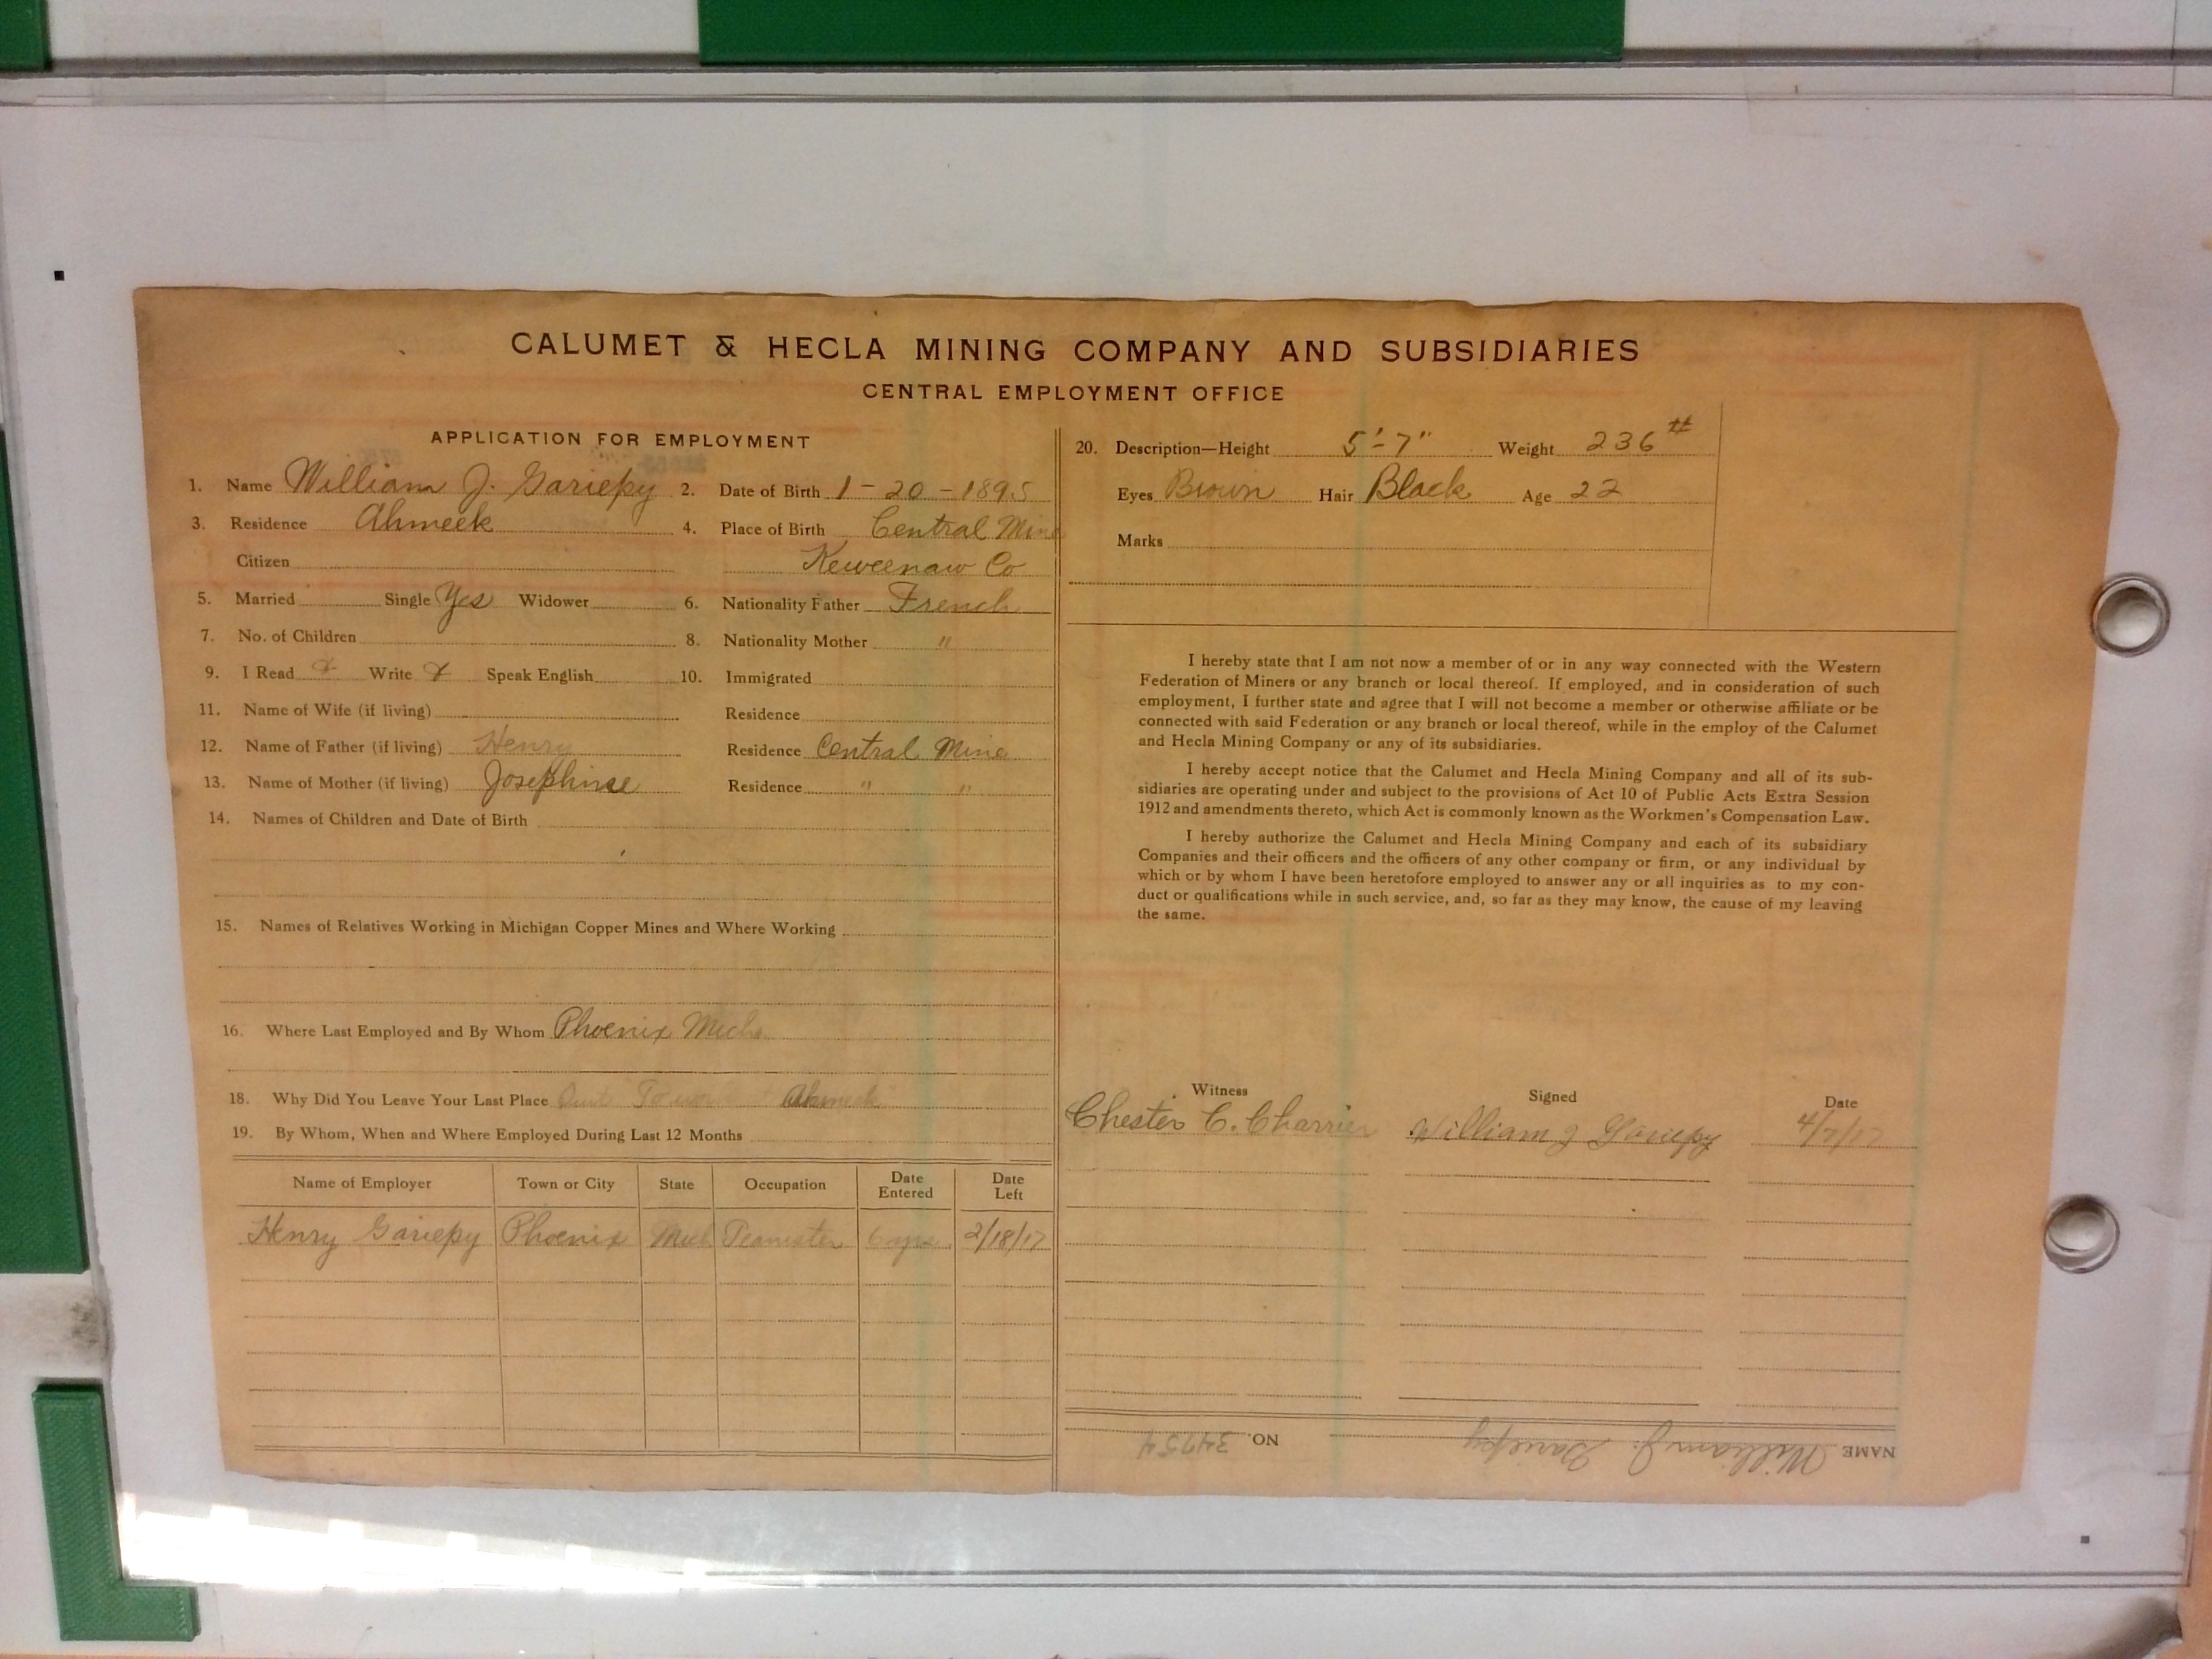 CALUMET & HECLA MINING COMPANY AND SUBSIDIARIES
CENTRAL EMPLOYMENT OFFICE
APPLICATION FOR EMPLOYMENT
1. Name William J. Gariepy 2. Date of Birth 1-20-1895
3. Residence Ahmeek 4. Place of Birth Central Mine
Citizen Keweenaw Co
5. Married Single Yes Widower 6. Nationality Father French
7. No. of Children 8. Nationality Mother "
9. I Read Write Speak English 10. Immigrated
11. Name of Wife (if living) Residence
12. Name of Father (if living) Henry Residence Central Mine
13. Name of Mother (if living) Josephine Residence " "
14. Names of Children and Date of Birth
15. Names of Relatives Working in Michigan Copper Mines and Where Working
16. Where Last Employed and By Whom Phoenix Mich
18. Why Did You Leave Your Last Place Quit To work Ahmeek
19. By Whom, When and Where Employed During Last 12 Months
Name of Employer Town or City State Occupation Date Entered Date Left
Henry Gariepy Phoenix Mich Teamster 6 yrs. 2/18/17
20. Description—Height 5'-7" Weight 236#
Eyes Brown Hair Black Age 22
Marks
I hereby state that I am not now a member of or in any way connected with the Western
Federation of Miners or any branch or local thereof. If employed, and in consideration of such
employment, I further state and agree that I will not become a member or otherwise affiliate or be
connected with said Federation or any branch or local thereof, while in the employ of the Calumet
and Hecla Mining Company or any of its subsidiaries.
I hereby accept notice that the Calumet and Hecla Mining Company and all of its sub-
sidiaries are operating under and subject to the provisions of Act 10 of Public Acts Extra Session
1912 and amendments thereto, which Act is commonly known as the Workmen's Compensation Law.
I hereby authorize the Calumet and Hecla Mining Company and each of its subsidiary
Companies and their officers and the officers of any other company or firm, or any individual by
which or by whom I have been heretofore employed to answer any or all inquiries as to my con-
duct or qualifications while in such service, and, so far as they may know, the cause of my leaving
the same.
Witness Signed Date
Chester C. Charrier William J Gariepy 4/7/17
NAME William J. Gariepy NO. 34754